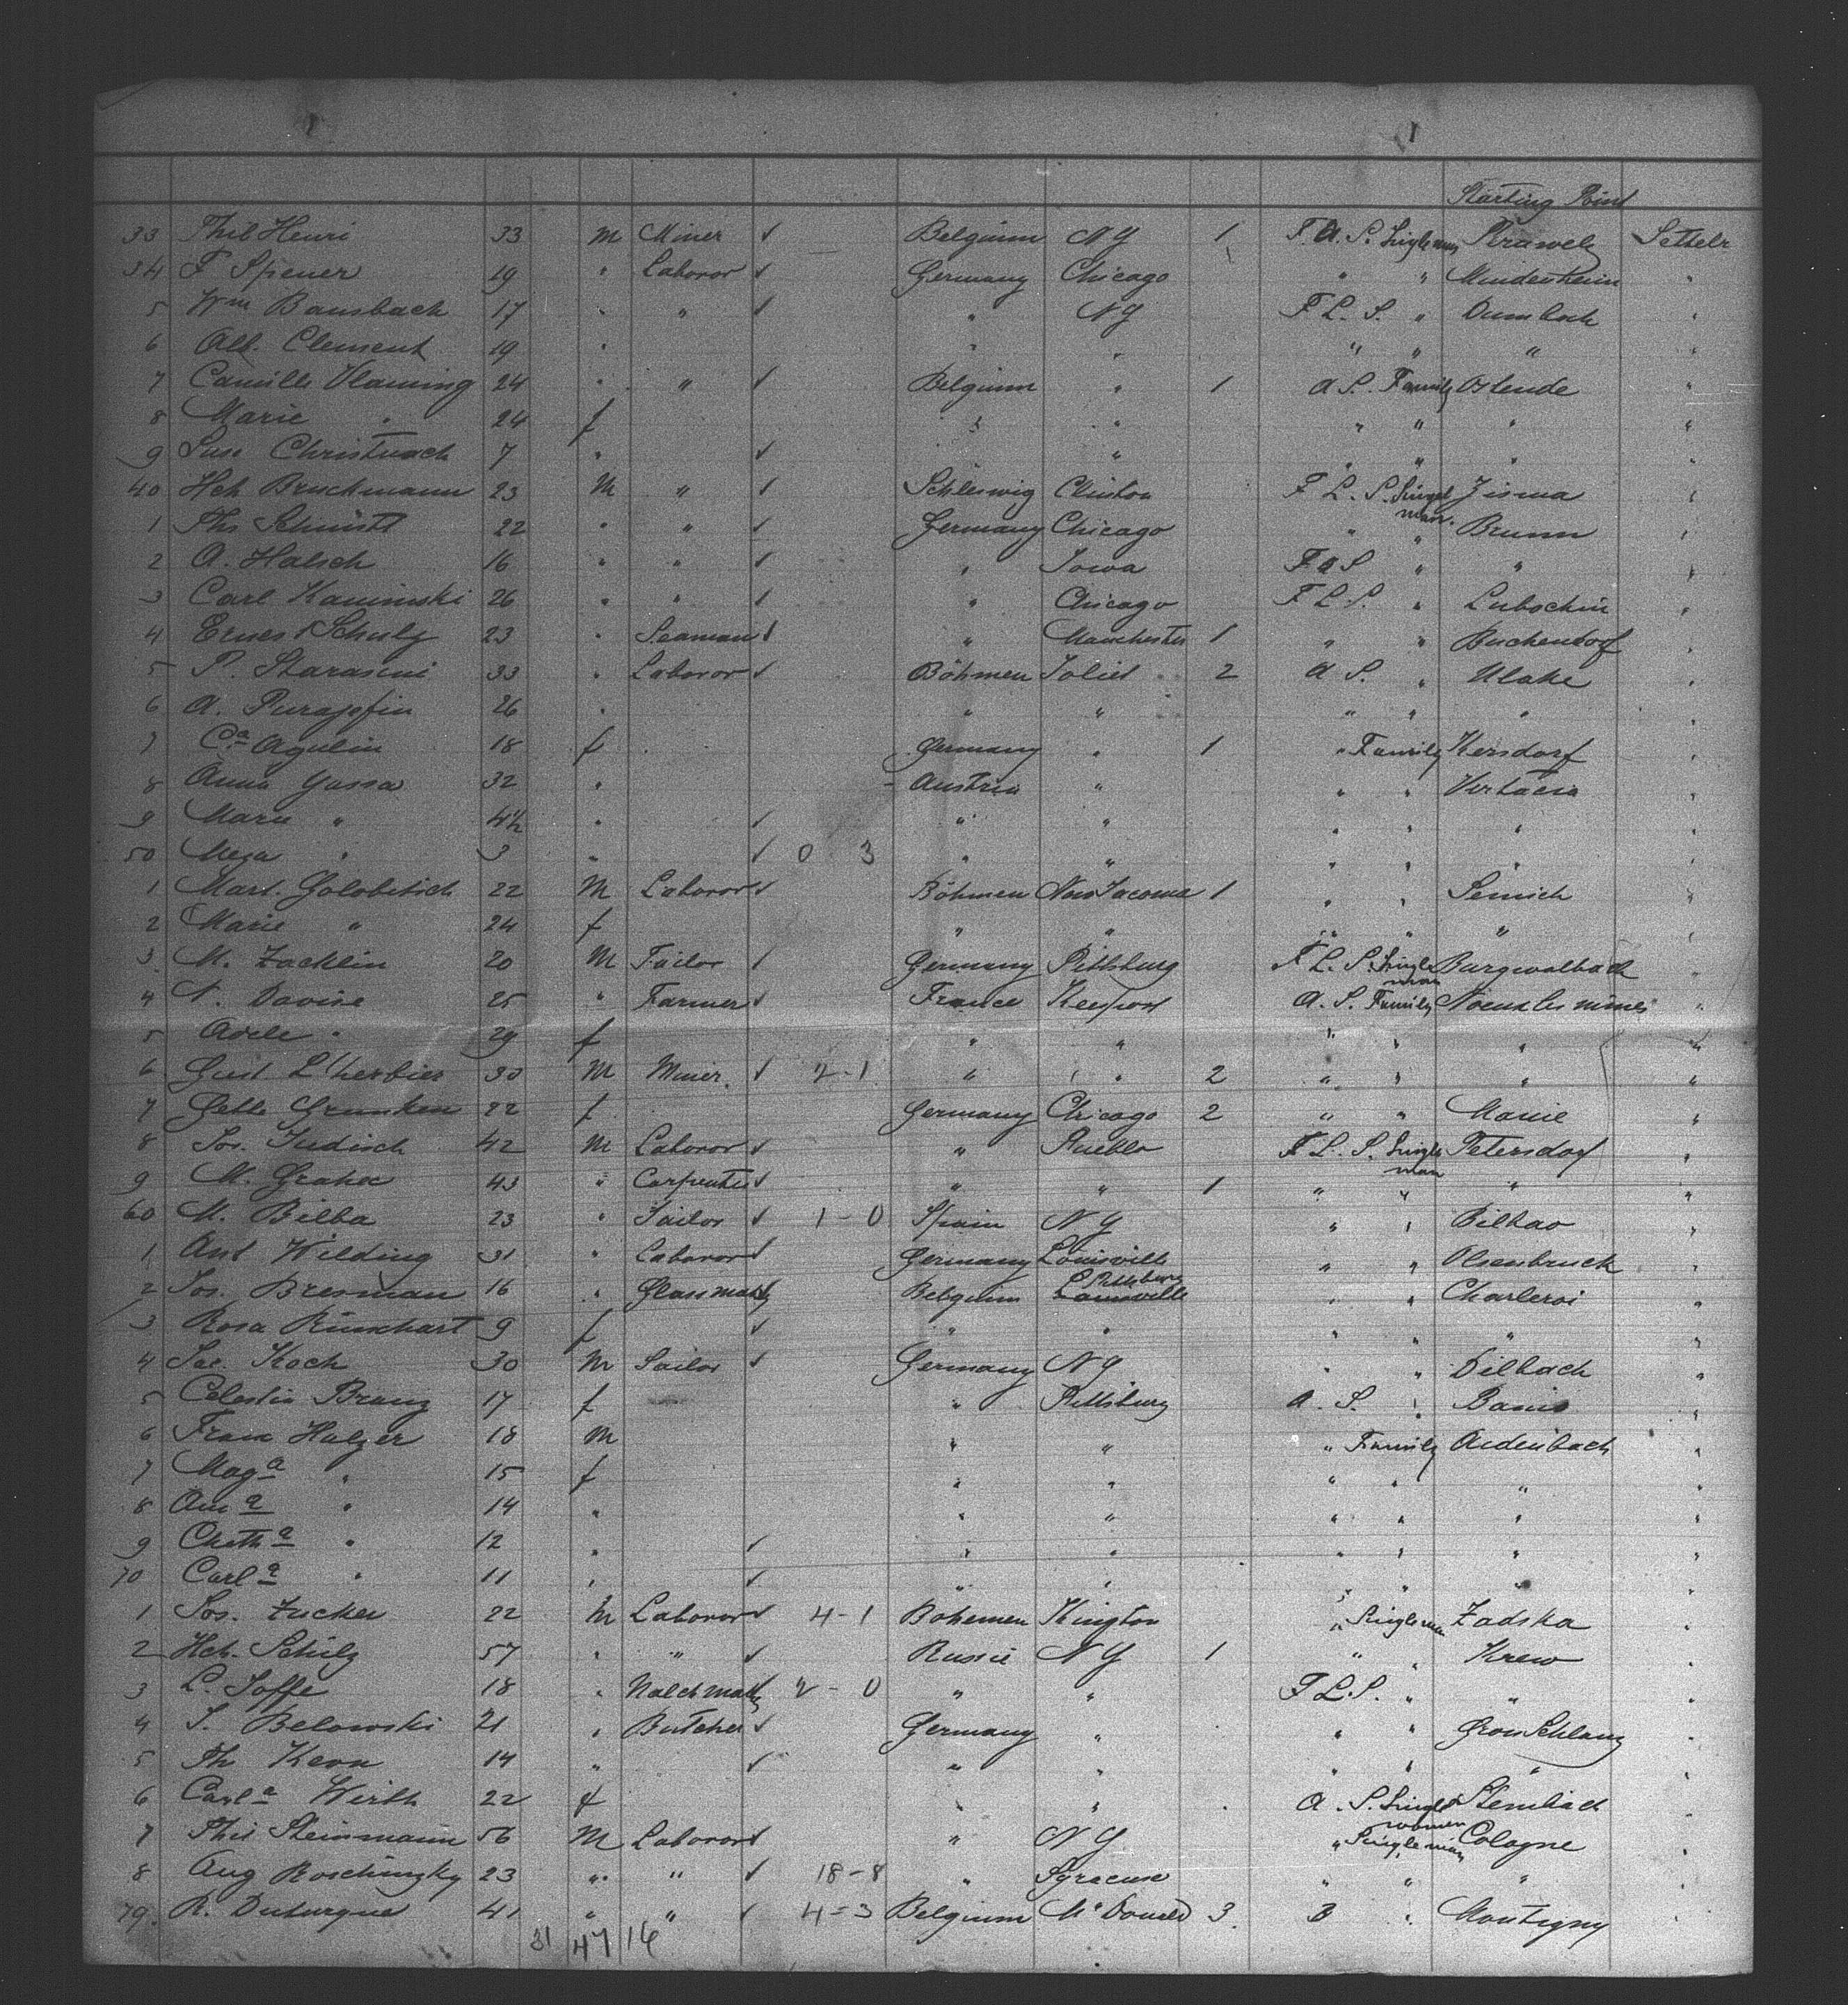 Starting Point
33 Phil Henri 33 M Miner ✓ Belgium NY 1 F A. S. Single man Settelr
34 F Speuer 19 " Laboror ✓ Germany Chicago " " Mindenheim "
5 Wm Bausbach 17 " " ✓ " NY F L. S. " Dumbach "
6 Alb. Clement 19 " " " " " " "
7 Camille Vlaming 24 " " ✓ Belgium " 1 A S. Family Ostende "
8 Marie " 24 f " " " " " "
9 Suse Christnach 7 " ✓ " " " " "
40 Hch Bruchmann 23 M " ✓ Schleswig Clinton F L. S. Singel man. Jisma "
1 Ths Schmitt 22 " " ✓ Germany Chicago " " Brunn "
2 A. Halsch 16 " " ✓ " Iowa F A S " " "
3 Carl Kaminski 26 " " ✓ " Chicago F L S. " Lubschin "
4 Ernest Schulz 23 " Seaman ✓ " Manchester 1 " " Buchendorf "
5 P. Starasini 33 " Laboror ✓ Böhmen Joliet 2 A S. " Ulake "
6 A. 26 " " " " " " "
7 Ca Agulin 18 f Germany " 1 " Family Kersdorf "
8 Anna Gassa 32 " Austria " " " Vertacia "
9 Marie " 4½ " ✓ " " " " " "
50 Meza " 3 " ✓ 0 3 " " " " " "
1 Mart. Golobitsch 22 M Laboror ✓ Böhmen New Tacoma 1 " " Semich "
2 Marie " 24 f " " " " " "
3 M. Zacklin 20 M Tailor ✓ Germany Pittsburg F L. S. Single man Burgwalbach "
4 N. Davine 25 " Farmer ✓ France Keesport A. S. Family Noeux les mines "
5 Adele " 29 f " " " " " "
6 Gust L'herbier 30 M Miner ✓ 2-1 " " 2 " " " "
7 Gebb 22 f Germany Chicago 2 " " "
8 Jos. Judisch 42 M Laboror ✓ " Pueblo F L. S. Single man Petersdorf "
9 M. Grahek 43 " Carpenter ✓ " " 1 " " " "
60 M. Bilba 23 " Sailor ✓ 1-0 Spain NY " " Bilbao "
1 Ant Wilding 31 " Laboror ✓ Germany Louisville " " Olsenbruck "
2 Jos. Bresman 16 " Glassmak Belgium Pittsburg Louisville " " Charleroi "
3 Rosa Rinschart 9 f ✓ " " " " " "
4 Jac. Koch 30 M Sailor ✓ Germany NY " " Dilbach "
5 Celestin Branz 17 f " Pittsburg A. S. " "
6 Franz Holzer 18 M " " " Family Aidenbach "
7 Maga " 15 f " " " " " "
8 Ama " 14 " " " " " " "
9 Catha " 12 " ✓ " " " " " "
70 Carla " 11 " ✓ " " " " " "
1 Jos. Zucker 22 M Laboror ✓ 4-1 Bohemen Kington " Single man Zadska "
2 Hch. Schulz 57 " " ✓ Russie NY 1 " " Krew "
3 L. Joffe 18 " 2-0 " " F L. S. " " "
4 S. Belowski 21 " Butcher ✓ Germany " " " "
5 Th Kern 14 " ✓ " " " " " "
6 Carla Wirth 22 f " " A. S. Single women Steinbach "
7 Phil Steinmann 56 M Laboror ✓ " NY " Single man Cologne "
8 Aug Roschinzky 23 " " ✓ 18-8 " Syracuse " " " "
79. R. Duturque 41 " " ✓ 4-3 Belgium McDonald 3. B " Montigny "
31 47 16